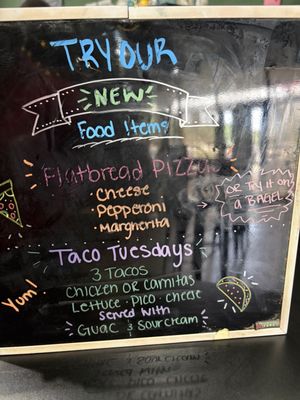 TRY OUR
NEW
Food Items
Flatbread Pizzas
· Cheese
· Pepperoni
· Margherita
→ OR TRY it ON
A BAGEL
Taco Tuesdays
3 Tacos
Chicken or Carnitas
Lettuce · Pico · Cheese
served with
Guac & Sour cream
Yum!